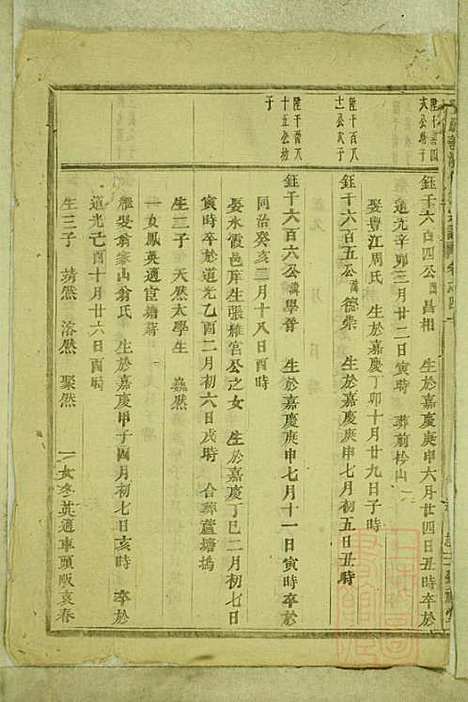 陞千
六公
鈺千六百四公諱昌相 生於嘉慶庚申六月廿四日丑時卒於
道光辛卯三月廿二日寅時 葬前枔山
娶豐江周氏 生於嘉慶丁卯十月廿九日子時
陞千百八
士公次子
鈺千六百五公諱德崇 生於嘉慶庚申七月初五日丑時
陞千百八
十五公
子
鈺千六百六公諱學晉 生於嘉慶庚申七月十一日寅時卒於
同治癸亥三月十八日酉時
娶水霞邑庠生張雅宮公之女 生於嘉慶丁巳二月初七日
寅時卒於道光乙酉二月初六日戌時 合葬蘆塘塢
生二子 天然太學生 巍然
一女鳳英適宦塘蔣
繼娶翁家山翁氏 生於嘉慶甲子四月初七日亥時 卒於
道光己酉十月廿六日酉時
生三子 靖然 溶然 聚然 一女冬英適車頭阪袁春